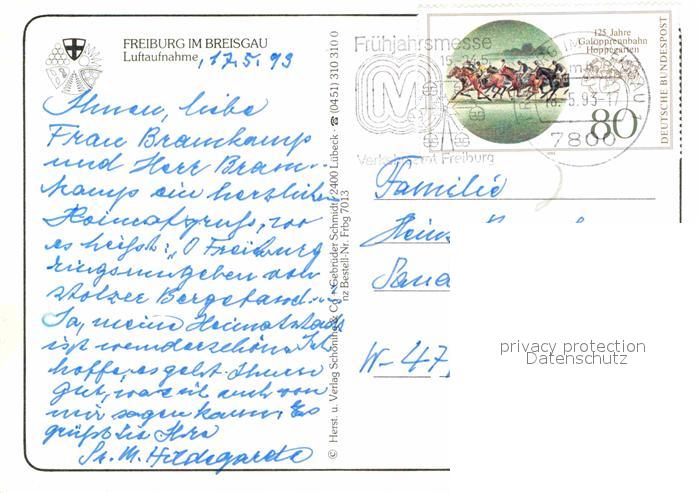 FREIBURG IM BREISGAU
Luftaufnahme, 17.5.93
Ihnen, liebe
Frau Bramkamp
und Herr Bram-
kamp ein herzlicher
Heimatgruß, wo
es heißt: „O Freiburg
rings umgeben von
stolzer Bergeswand..."
Ja, meine Heimatstadt
ist wunderschön. Ich
hoffe, es geht Ihnen
gut, was ich auch von
mir sagen kann. Es
grüßt Sie Ihre
Sr. M. Hildegarda
© Herst. u. Verlag Schöning & Co + Gebrüder Schmidt, 2400 Lübeck ☎ (0451) 310 310 0
Bestell-Nr. Frbg 7013
Frühjahrsmesse
Verkehrsamt Freiburg
125 Jahre
Galopprennbahn
Hoppegarten
DEUTSCHE BUNDESPOST
80
5.93-17
7800
Familie
Heinz
W-47
privacy protection
Datenschutz